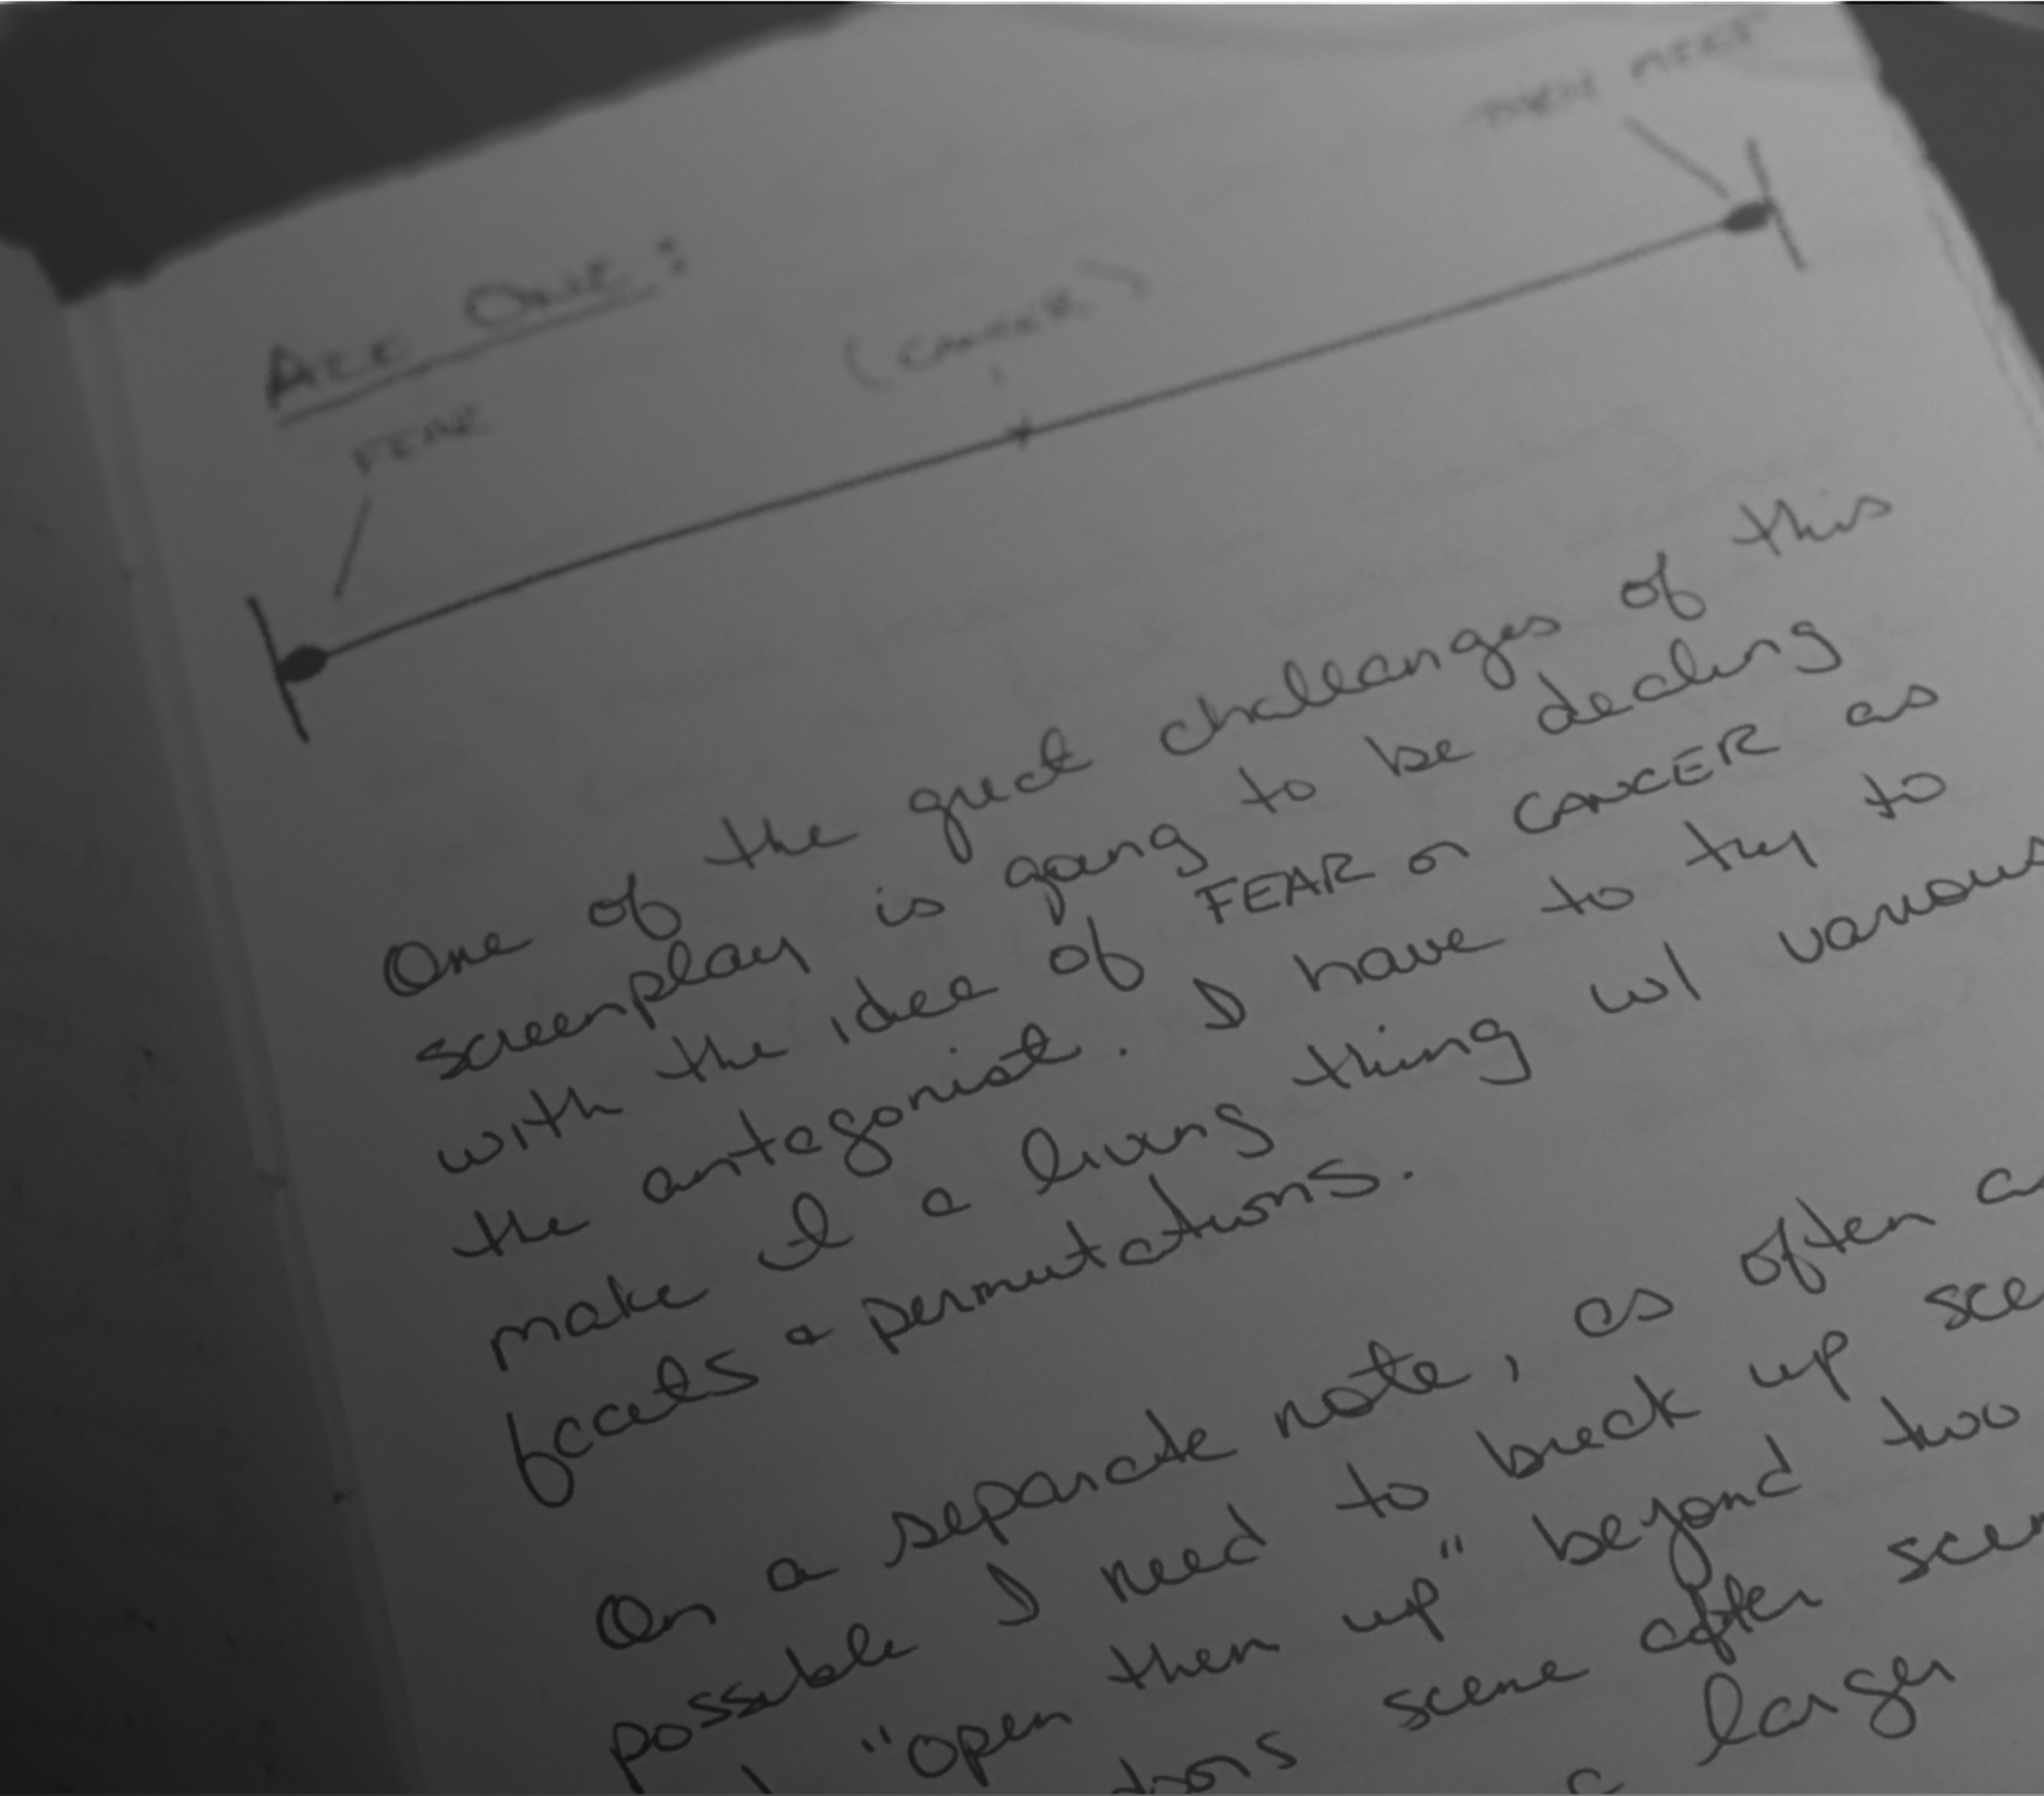 THEN MEET
ACT ONE:
(CANCER)
FEAR
One of the great challanges of this
screenplay is going to be dealing
with the idea of FEAR or CANCER as
the antagonist. I have to try to
make it a living thing w/ various
facets & permutations.
On a separate note, as often as
possible I need to break up
"open them up" beyond two
scene after
larger